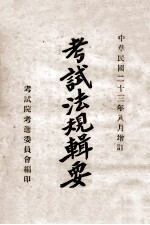 中華民國二十三年八月增訂
考試法規輯要
考試院考選委員會編印